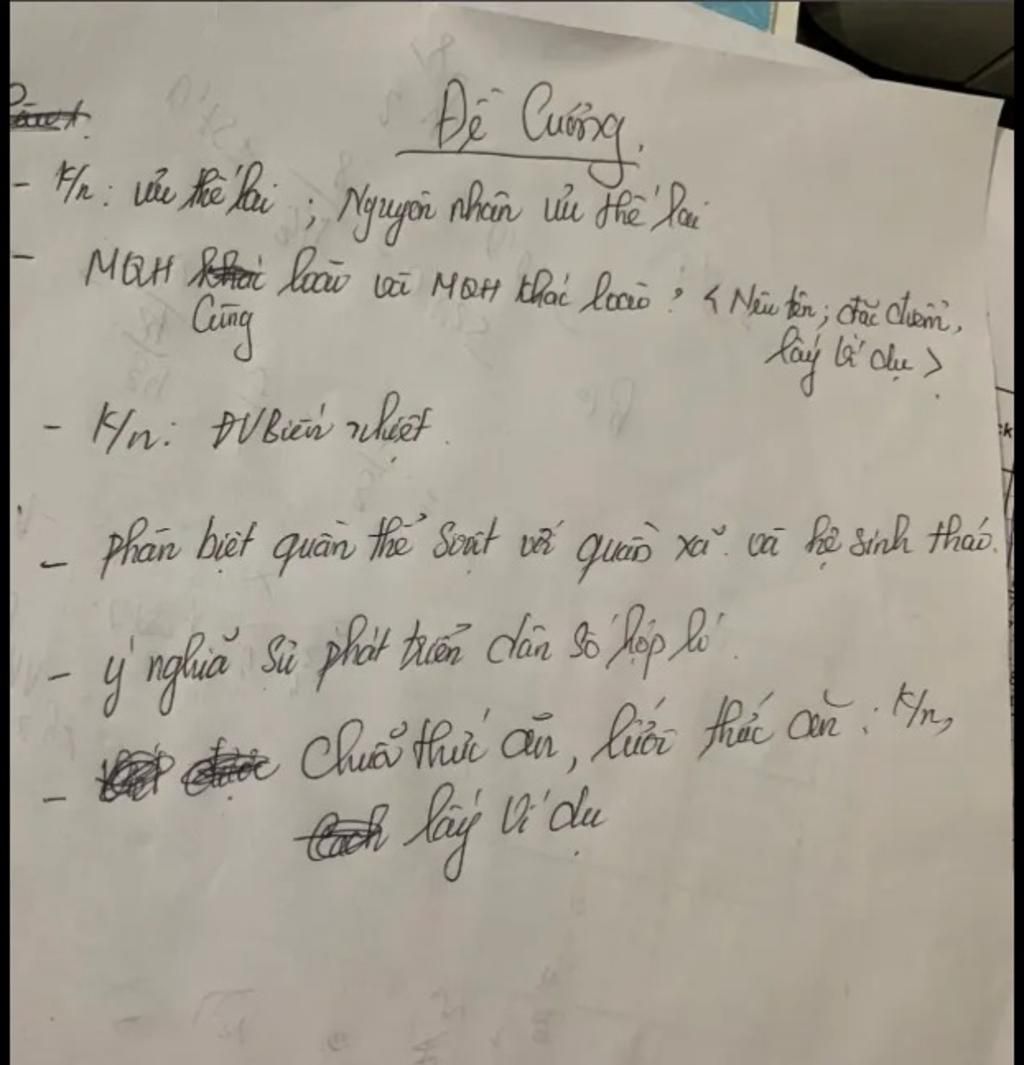 Đề Cương
- K/n: ưu thế lai ; Nguyên nhân ưu thế lai
- MQH cùng loài và MQH khác loài ? < Nêu tên; đặc điểm,
lấy ví dụ >
- K/n: ĐV Biến nhiệt.
- phân biệt quần thể svật với quần xã và hệ sinh thái.
- ý nghĩa sự phát triển dân số hợp lí.
- Chuỗi thức ăn, lưới thức ăn : K/n,
lấy ví dụ